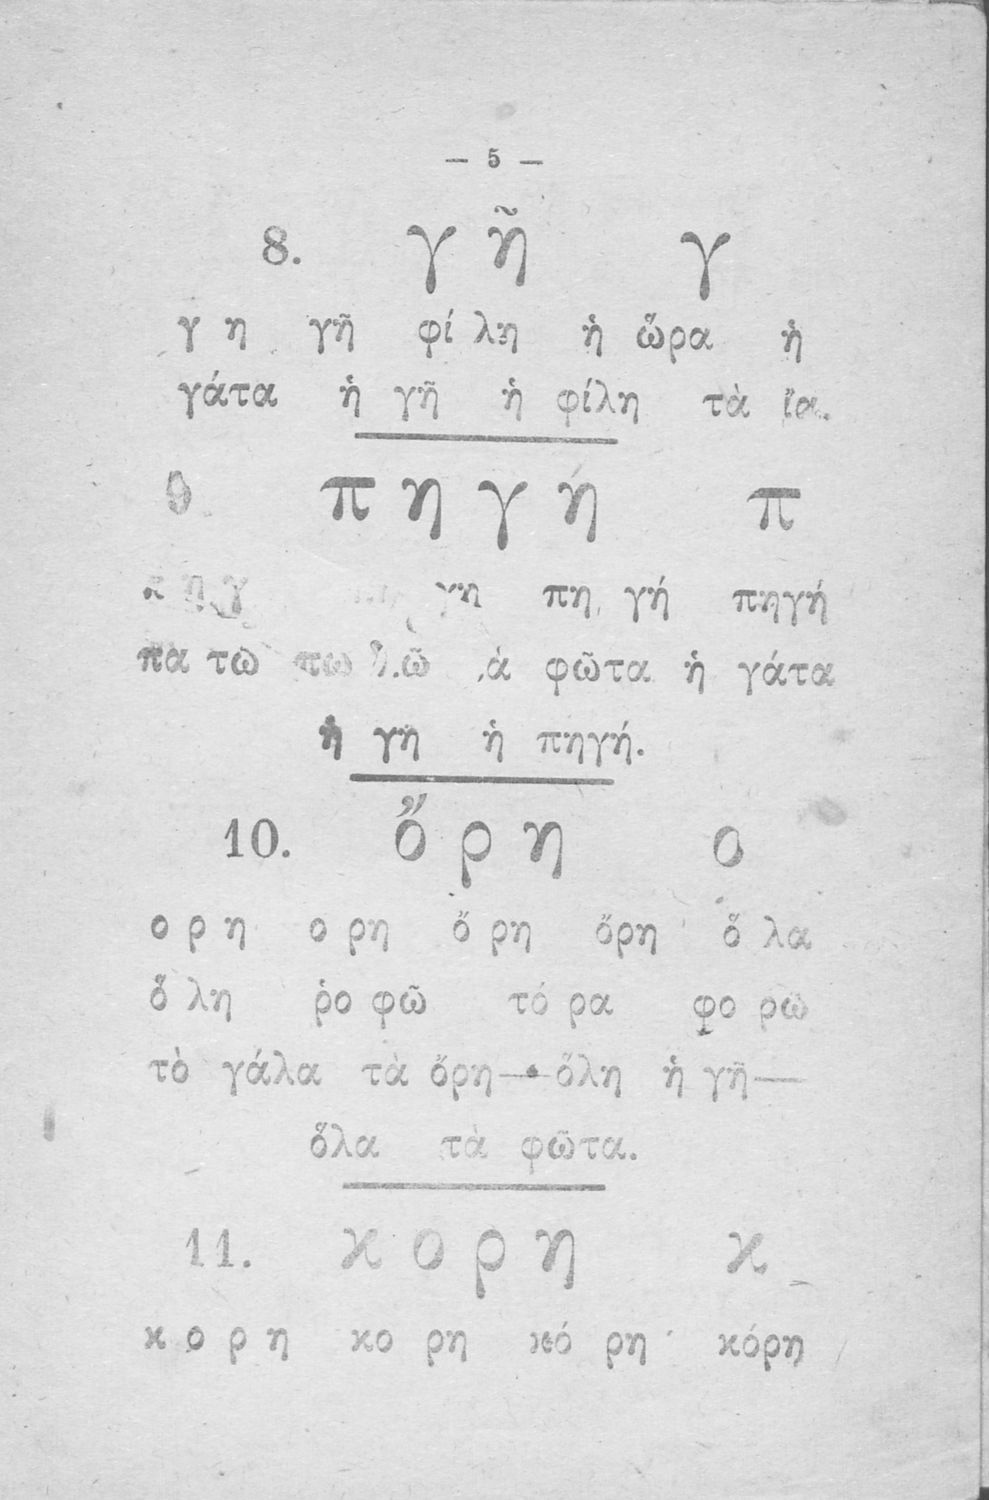 — 5 —
8. γ ῆ γ
γ η γῆ φί λη ἡ ὥρα ἡ
γάτα ἡ γῆ ἡ φίλη τὰ ἴα.
9 π η γ ή π
η γ γη πη γή πηγή
πα τῶ πω φῶτα ἡ γάτα
ἡ γῆ ἡ πηγή.
10. ὄ ρ η ο
ο ρ η ο ρη ὄ ρη ὄρη ὅ λα
ὅ λη ῥο φῶ τό ρα φο ρῶ
τὸ γάλα τὰ ὄρη — ὅλη ἡ γῆ —
ὅλα τὰ φῶτα.
11. κ ο ρ η κ
κ ο ρ η κο ρη κό ρη κόρη